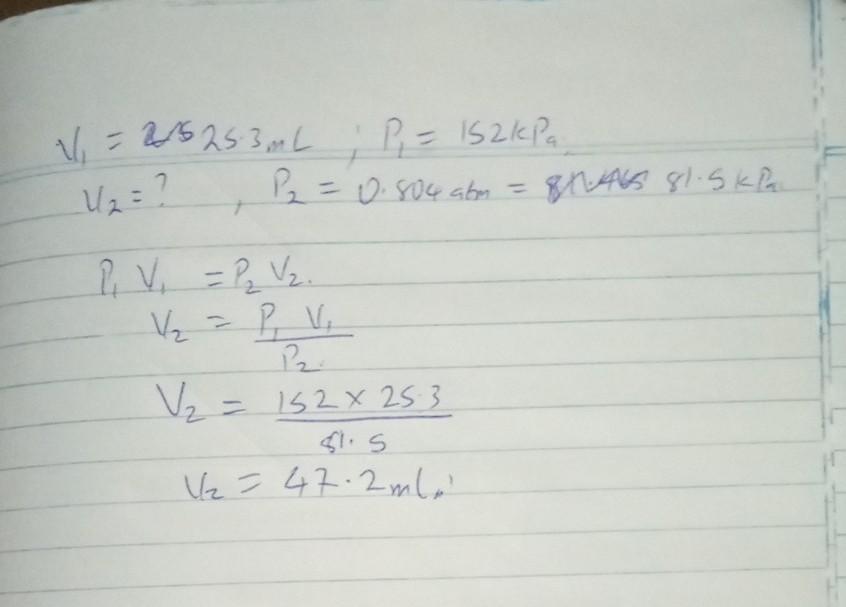 V₁ = 25.3 mL ; P₁ = 152 kPa
V₂ = ? , P₂ = 0.804 atm = 81.5 kPa
P₁ V₁ = P₂ V₂.
V₂ = P₁ V₁ / P₂.
V₂ = 152 × 25.3 / 81.5
V₂ = 47.2 mL